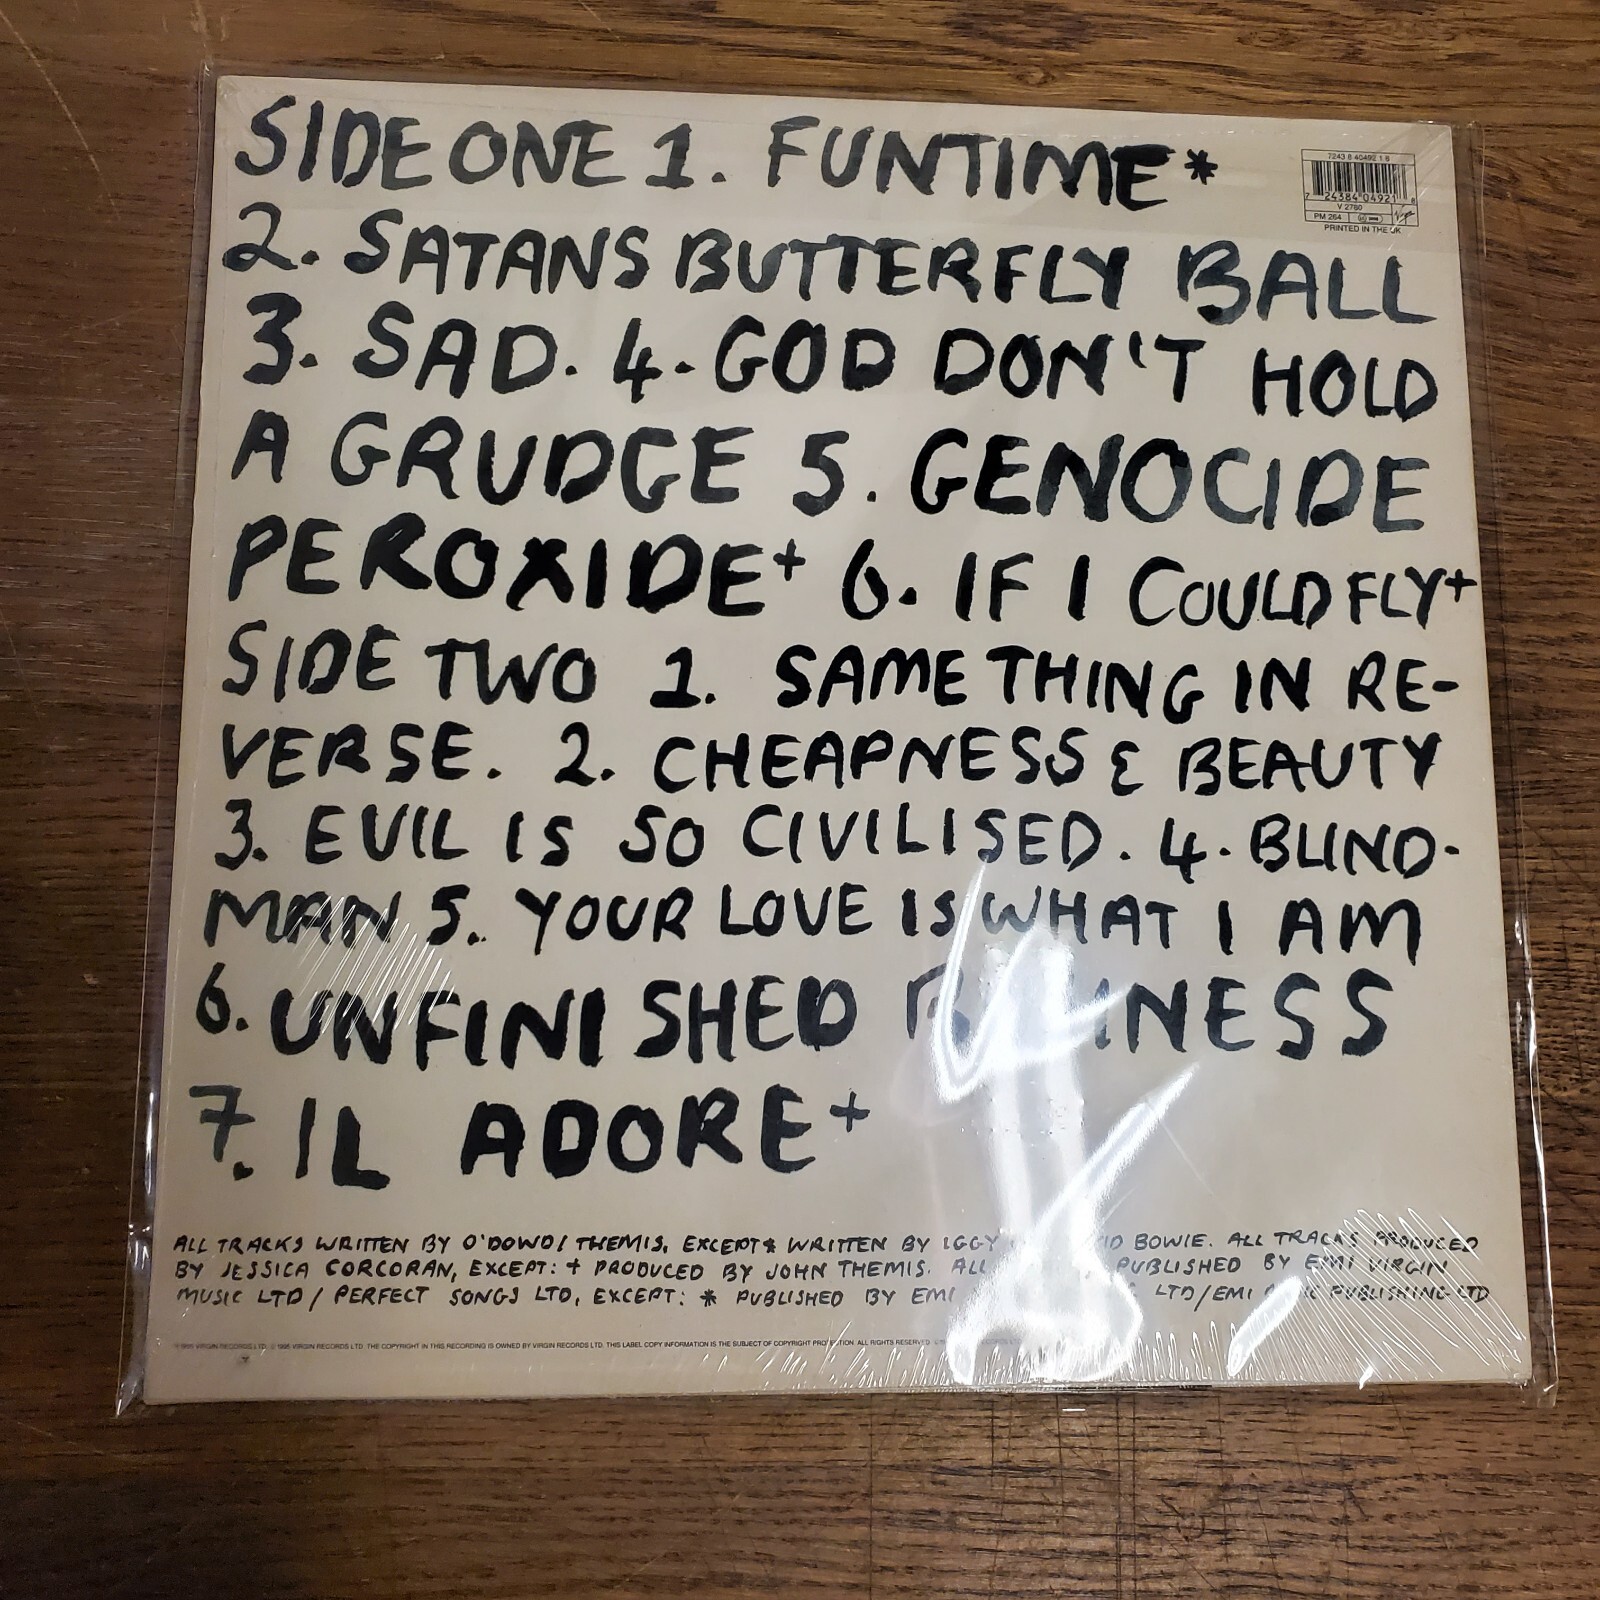 SIDE ONE 1. FUNTIME*
7243 8 40492 1 8
7 24384 04921 8
V 2780
PM 264
Virgin
PRINTED IN THE UK
2. SATANS BUTTERFLY BALL
3. SAD. 4. GOD DON'T HOLD
A GRUDGE 5. GENOCIDE
PEROXIDE+ 6. IF I COULD FLY+
SIDE TWO 1. SAME THING IN RE-
VERSE. 2. CHEAPNESS & BEAUTY
3. EVIL IS SO CIVILISED. 4. BLIND-
MAN 5. YOUR LOVE IS WHAT I AM
6. UNFINISHED
7. IL ADORE+
ALL TRACKS WRITTEN BY O'DOWD/THEMIS, EXCEPT* WRITTEN BY IGGY BOWIE. ALL TRACKS PRODUCED
BY JESSICA CORCORAN, EXCEPT: + PRODUCED BY JOHN THEMIS. ALL PUBLISHED BY EMI VIRGIN
MUSIC LTD/PERFECT SONGS LTD, EXCEPT: * PUBLISHED BY EMI LTD/EMI PUBLISHING LTD
VIRGIN RECORDS LTD. © 1995 VIRGIN RECORDS LTD. THE COPYRIGHT IN THIS RECORDING IS OWNED BY VIRGIN RECORDS LTD. THIS LABEL COPY INFORMATION IS THE SUBJECT OF COPYRIGHT PROTECTION. ALL RIGHTS RESERVED.